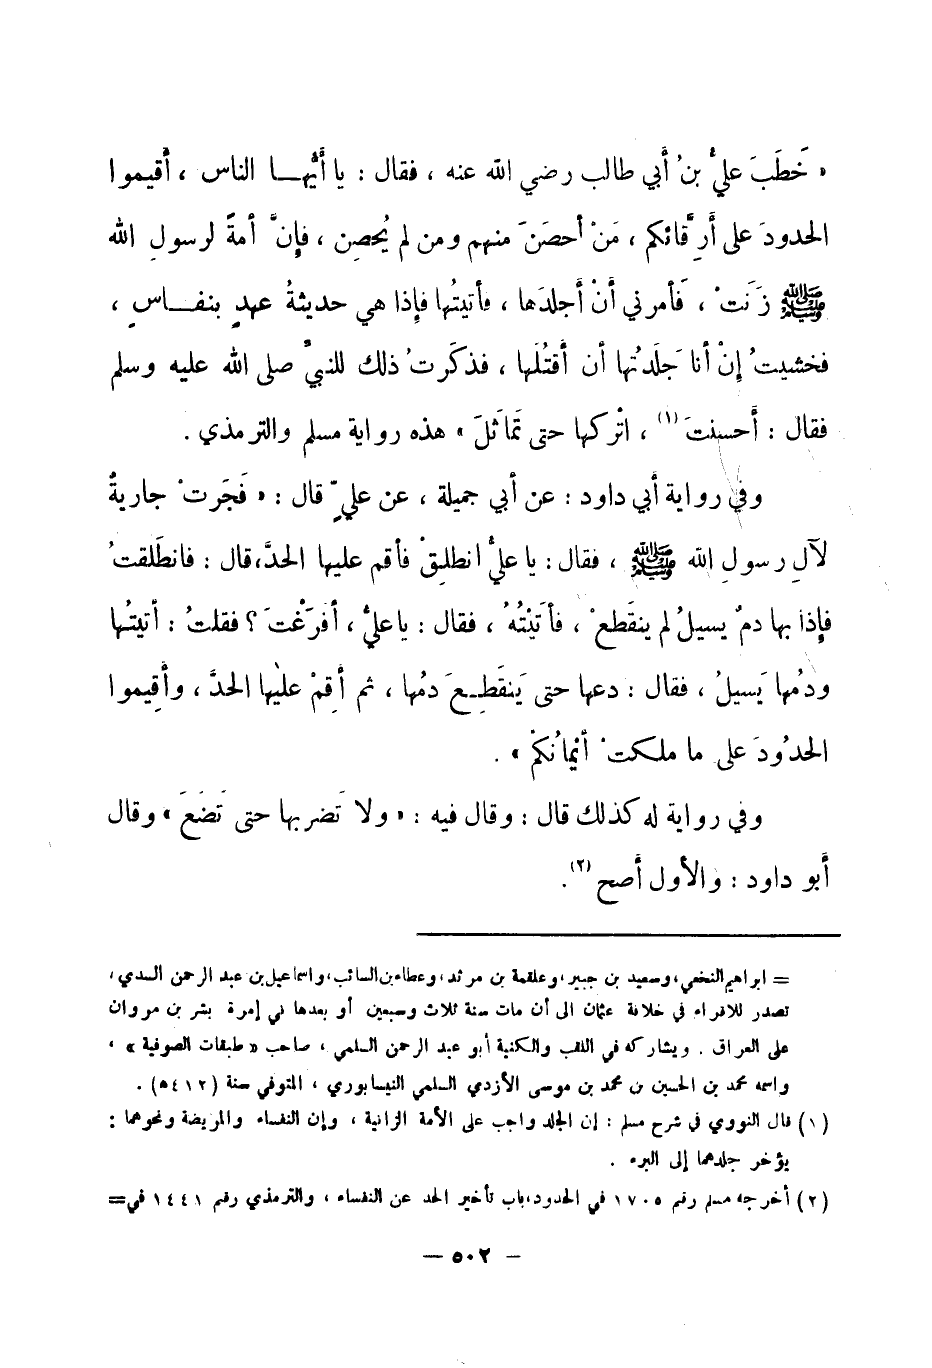 « خَطَبَ عليُّ بنُ أبي طالب رضي الله عنه ، فقال : يا أيُّهـا الناس ، أقيموا
الحدودَ على أَرِقَّائكم ، مَنْ أحصَنَ منهم ومن لم يُحصِن ، فإِنَّ أمةً لرسولِ الله
ﷺ زَنَتْ ، فَأمرني أنْ أجلدَها ، فأتيتُها فإذا هي حديثةُ عهدٍ بنفـاسٍ ،
فخشيتُ إنْ أنا جَلَدتُها أن أقتُلَها ، فذكَرتُ ذلك للنبيِّ صلى الله عليه وسلم
فقال : أَحسنتَ (١) ، اتْركها حتى تَمَاثَلَ » هذه رواية مسلم والترمذي .
وفي رواية أبي داود : عن أبي جميلة ، عن عليٍّ قال : « فَجَرتْ جاريةٌ
لآلِ رسولِ الله ﷺ ، فقال : يا عليُّ انطلِقْ فأقم عليها الحدَّ،قال : فانطَلقتُ
فإِذا بها دمٌ يسيلُ لم ينقَطعْ ، فأتَيْتُهُ ، فقال : يا عليُّ ، أفَرَغْتَ ؟ فقلتُ : أتيتُها
ودُمها يَسيلُ ، فقال : دعها حتى يَنقَطِـعَ دمُها ، ثم أقِمْ عليْها الحدَّ ، وأَقِيموا
الحدُودَ على ما ملكتْ أيْمانُكمْ » .
وفي رواية له كذلك قال : وقال فيه : « ولا تَضربها حتى تَضَعَ » وقال
أبو داود : والأول أصح (٢).
= ابراهيم النخعي،وسعيد بن جبير،وعلقمة بن مرثد،وعطاء بن السائب،واسماعيل بن عبد الرحمن السدي،
تصدر للاقراء في خلافة عثمان الى أن مات سنة ثلاث وسبعين أو بعدها في إمرة بشر بن مروان
على العراق . ويشاركه في اللقب والكنية أبو عبد الرحمن السلمي ، صاحب « طبقات الصوفية » ،
واسمه محمد بن الحسين بن محمد بن موسى الأزدي السلمي النيسابوري ، المتوفى سنة (٤١٢ﻫ) .
(١) قال النووي في شرح مسلم : إن الجلد واجب على الأمة الزانية ، وإن النفساء والمريضة ونحوهما :
يؤخر جلدهما إلى البرء .
(٢) أخرجه مسلم رقم ١٧٠٥ في الحدود،باب تأخير الحد عن النفساء ، والترمذي رقم ١٤٤١ في=
– ٥٠٢ –